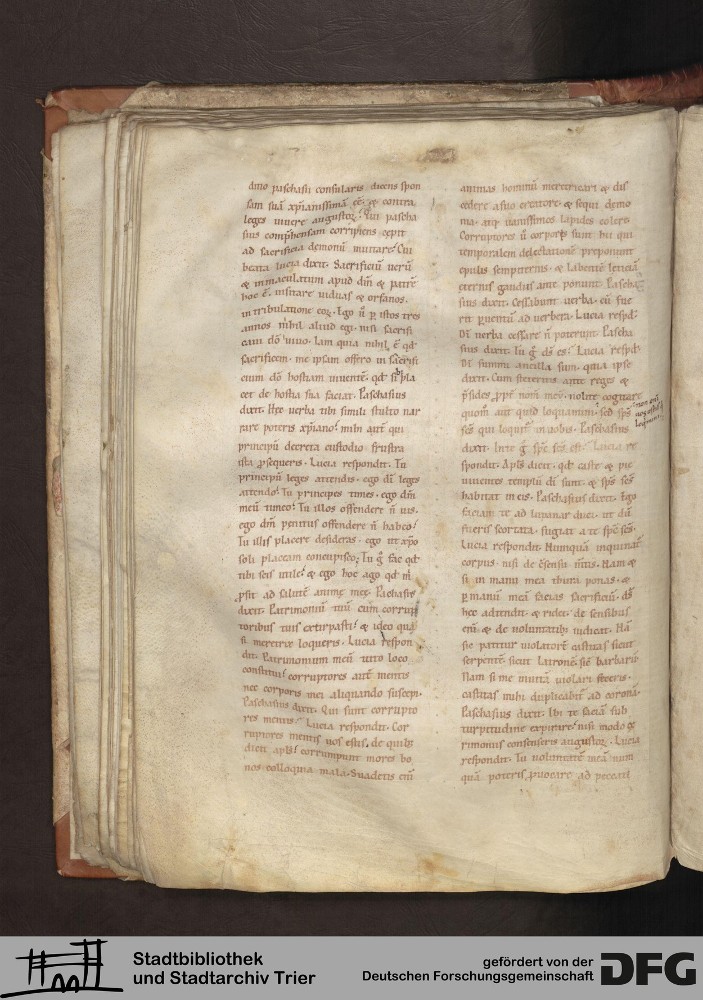 dino paschasii consularis dicens spon
sam suā xp̄ianissimā eē. & contra
leges vivere augustoꝝ. Qui pascha
sius comp̄hensam corripiens cepit
ad sacrificia demonū invitare. Cui
beata lucia dixit. Sacrificiū verū
& inmaculatum apud dm̄ & patrē
hoc ē. visitare viduas & orfanos.
in tribulatione eoꝝ. Ego ū ꝑ istos tres
annos nihil aliud egi. nisi sacrifi
cavi dō vivo. Iam quia nihil ē qd̄
sacrificem. me ipsam offero in sacrifi
cium dō hostiam viventē. qd̄ si pla
cet de hostia sua faciat. Paschasius
dixit. Hęc verba tibi simili stulto nar
rare poteris xp̄iano. mihi aut̄ qui
principū decreta custodio frustra
ista ꝓsequeris. Lucia respondit. Tu
principū leges attendis. ego dī leges
attendo. Tu principes times. ego dm̄
meū timeo. Tu illos offendere n̄ vis.
ego dm̄ penitus offendere n̄ habeo.
Tu illis placere desideras. ego ut xp̄o
soli placeam concupisco. Tu g̊ fac qd̄
tibi scis utile. & ego hoc ago qd̄ m̄
ꝓsit ad salutē animę meę. Pachasius
dixit. Patrimoniū tuū cum corrup
toribus tuis extirpasti. & ideo qua
si meretrix loqueris. Lucia respon
dit. Patrimonium meū tuto loco
constitui. corruptores aut̄ mentis
nec corporis mei aliquando suscepi.
Paschasius dixit. Qui sunt corrupto
res mentis. Lucia respondit. Cor
ruptores mentis vos estis. de quibꝰ
dicit apl̄s. corrumpunt mores bo
nos colloquia mala. Suadetis eni
animas hominū meretricari & dis
cedere a suo creatore. & sequi demo
nia. atq; vanissimos lapides colere.
Corruptores ū corporis sunt hii qui
temporalem delectationē preponunt
epulis sempiternis. & labentē leticiā
ęternis gaudiis ante ponunt. Pascha
sius dixit. Cessabunt verba. cū fue
rit ꝑventū ad verbera. Lucia respd̄.
Dī verba cessare n̄ poterunt. Pascha
sius dixit. Tu g̊ d̄s es. Lucia respd̄.
Dī summi ancilla sum. quia ipse
dixit. Cum steteritis ante reges &
p̄sides ꝓpt̄ nom̄ meū. nolite cogitare
quom̄ aut quid loquamini. sed sp̄s
non enī
vos estis q̄
loquimini
sc̄s qui loquit̄ in vobis. Paschasius
dixit. In te g̊ sp̄c sc̄s est. Lucia re
spondit. Apl̄s dicit. qd̄ caste & pie
viventes templū dī sunt. & sp̄s sc̄s
habitat in eis. Paschasius dixit. Ego
faciam te ad lupanar duci. ut dū
fueris scortata. fugiat a te sp̄c sc̄s.
Lucia respondit. Nunquā inquinat̄
corpus. nisi de c̄sensu m̄tis. Nam &
si in manu mea thura ponas. &
ꝑ manū meā facias sacrificiū. d̄s
hęc adtendit. & ridet. de sensibus
eni & de voluntatibꝰ iudicat. Nā
sic patitur violatorē castitas sicut
serpentē. sicut latronē. sic barbarū.
Nam si me invitā violari feceris.
castitas mihi duplicabit̄ ad coronā.
Paschasius dixit. Ibi te faciā sub
turpitudine expirare. nisi modo ce
rimoniis consenseris augustoꝝ. Lucia
respondit. Tu voluntatē meā num
quā poteris ꝓvocare ad peccati
Stadtbibliothek
und Stadtarchiv Trier
gefördert von der
Deutschen Forschungsgemeinschaft
DFG